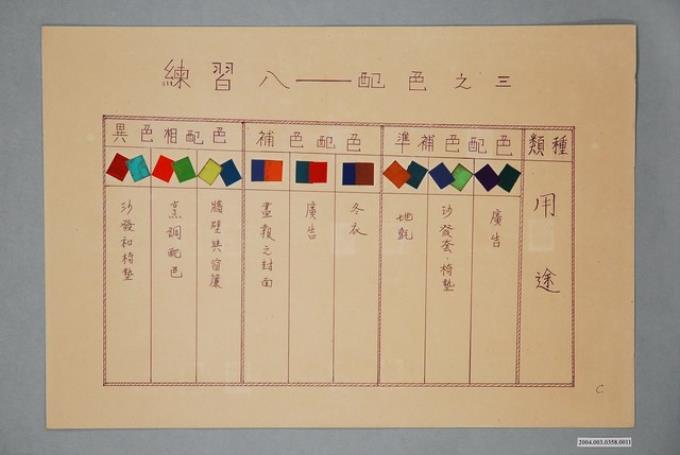 練習八——配色之三
種類
準補色配色
補色配色
異色相配色
用途
廣告
沙發套·椅墊
地氈
冬衣
廣告
畫報之封面
牆壁與窗簾
烹調配色
沙發和椅墊
C
2004.003.0358.0011